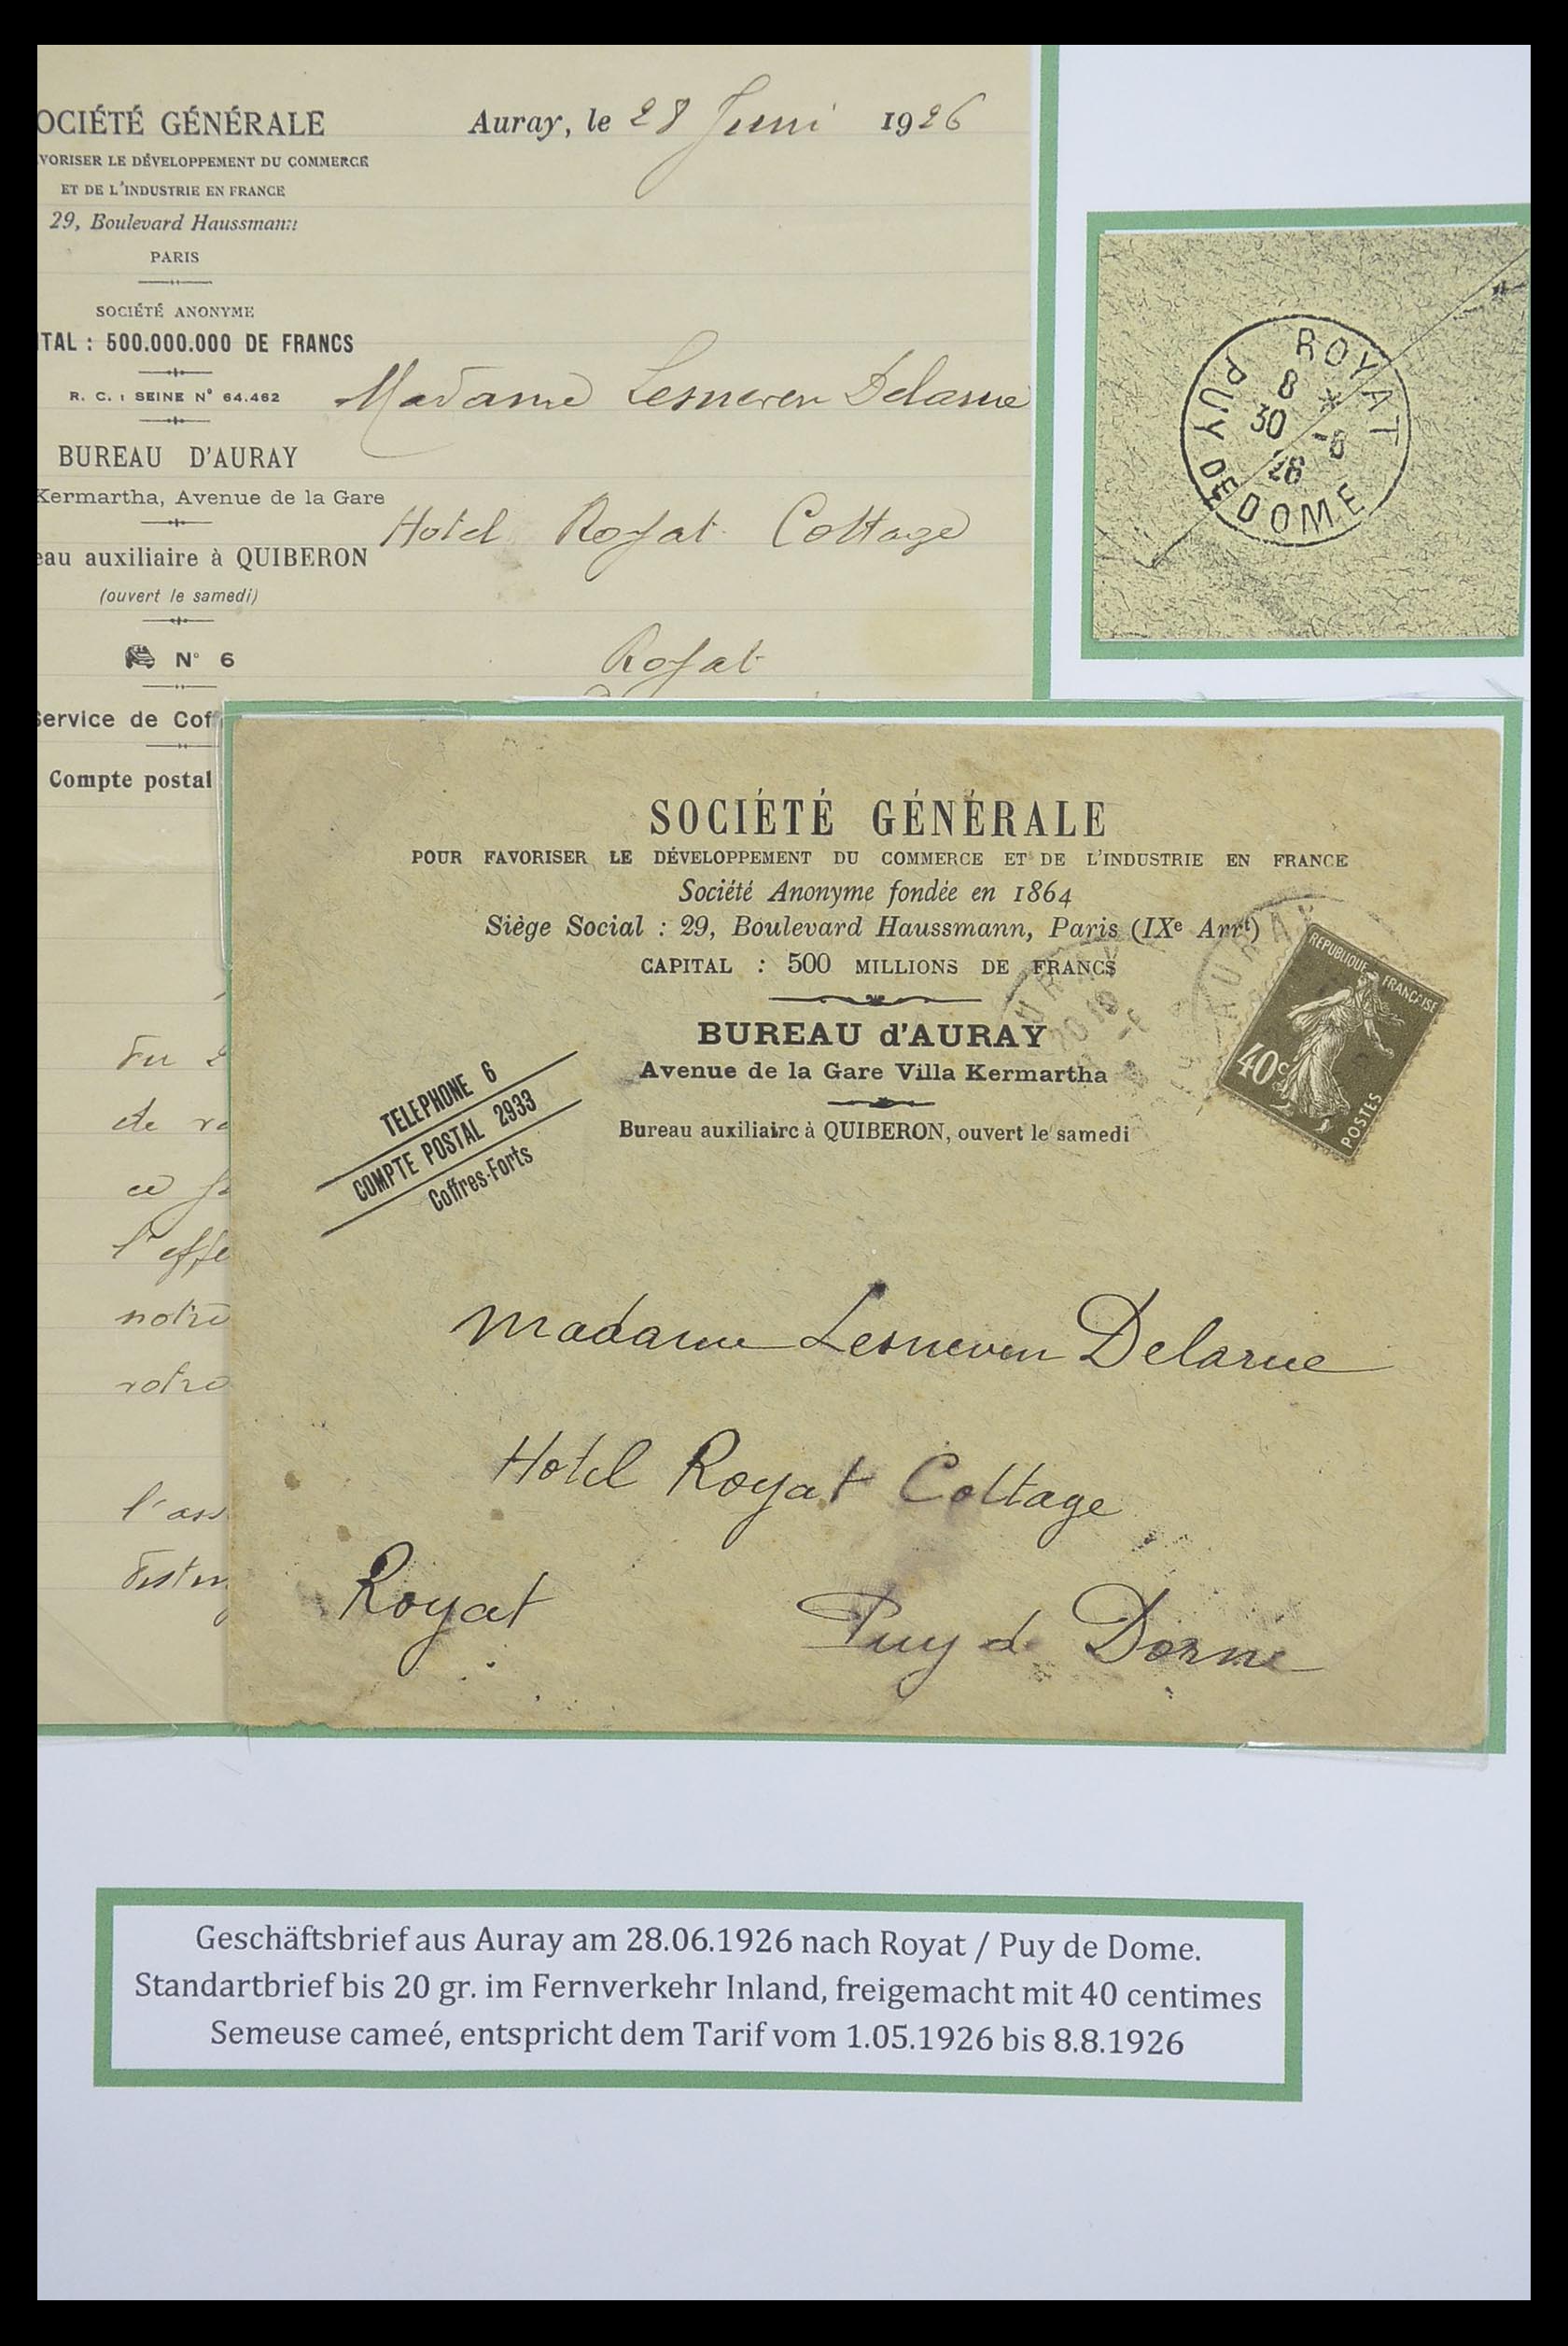 OCIÉTÉ GÉNÉRALE
VORISER LE DÉVELOPPEMENT DU COMMERCE
ET DE L'INDUSTRIE EN FRANCE
29, Boulevard Haussmann
PARIS
SOCIÉTÉ ANONYME
ITAL : 500.000.000 DE FRANCS
R. C. : SEINE N° 64.462
BUREAU D'AURAY
Kermartha, Avenue de la Gare
eau auxiliaire à QUIBERON
(ouvert le samedi)
N° 6
Service de Cof
Compte postal
Auray, le 28 Juni 1926
Madame Lesneven Delarue
Hotel Royat Cottage
Royat
de
ce
l'effe
notre
votre
l'ass
ROYAT
PUY DE DOME
8 *
30 -6
26
SOCIÉTÉ GÉNÉRALE
POUR FAVORISER LE DÉVELOPPEMENT DU COMMERCE ET DE L'INDUSTRIE EN FRANCE
Société Anonyme fondée en 1864
Siège Social : 29, Boulevard Haussmann, Paris (IXe Arrt)
CAPITAL : 500 MILLIONS DE FRANCS
BUREAU d'AURAY
Avenue de la Gare Villa Kermartha
Bureau auxiliaire à QUIBERON, ouvert le samedi
TELEPHONE 6
COMPTE POSTAL 2933
Coffres-Forts
AURAY
REPUBLIQUE FRANÇAISE
40c
POSTES
Madame Lesneven Delarue
Hotel Royat Cottage
Royat Puy de Dome
Geschäftsbrief aus Auray am 28.06.1926 nach Royat / Puy de Dome.
Standartbrief bis 20 gr. im Fernverkehr Inland, freigemacht mit 40 centimes
Semeuse cameé, entspricht dem Tarif vom 1.05.1926 bis 8.8.1926